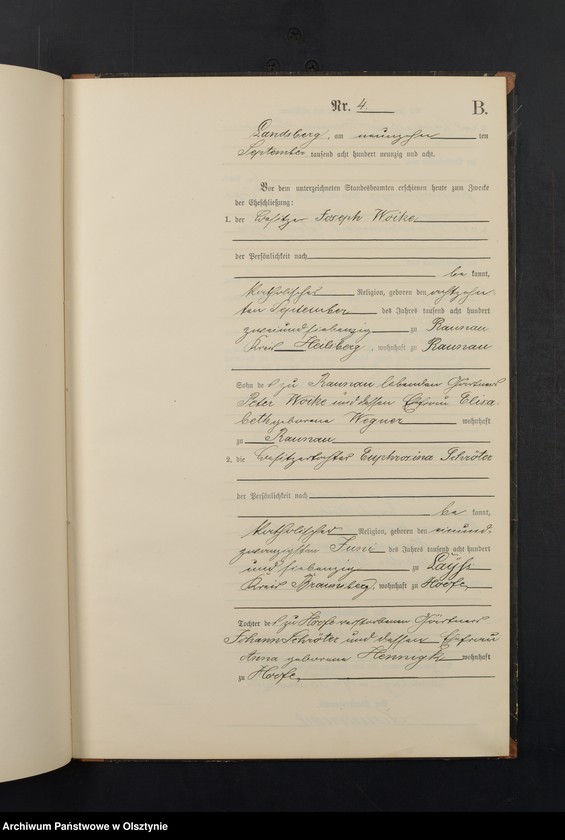 Nr. 4.
B.
Landsberg, am neunzehn ten
September tausend acht hundert neunzig und acht.
Vor dem unterzeichneten Standesbeamten erschienen heute zum Zwecke
der Eheschließung:
1. der Besitzer Joseph Woike
der Persönlichkeit nach
be kannt,
katholischer Religion, geboren den achtzehn-
ten September des Jahres tausend acht hundert
zweiundsiebenzig zu Raunau
Kreis Heilsberg, wohnhaft zu Raunau
Sohn des zu Raunau lebenden Gärtners
Peter Woike und dessen Ehefrau Elisa-
beth geborene Wegner wohnhaft
zu Raunau
2. die Besitzertochter Euphrosina Schröter
der Persönlichkeit nach
be kannt,
katholischer Religion, geboren den einund-
zwanzigsten Juni des Jahres tausend acht hundert
und siebenzig zu Layß
Kreis Braunsberg, wohnhaft zu Hoofe
Tochter des zu Hoofe verstorbenen Gärtners
Johann Schröter und dessen Ehefrau
Anna geborene Hennigk wohnhaft
zu Hoofe
Archiwum Państwowe w Olsztynie